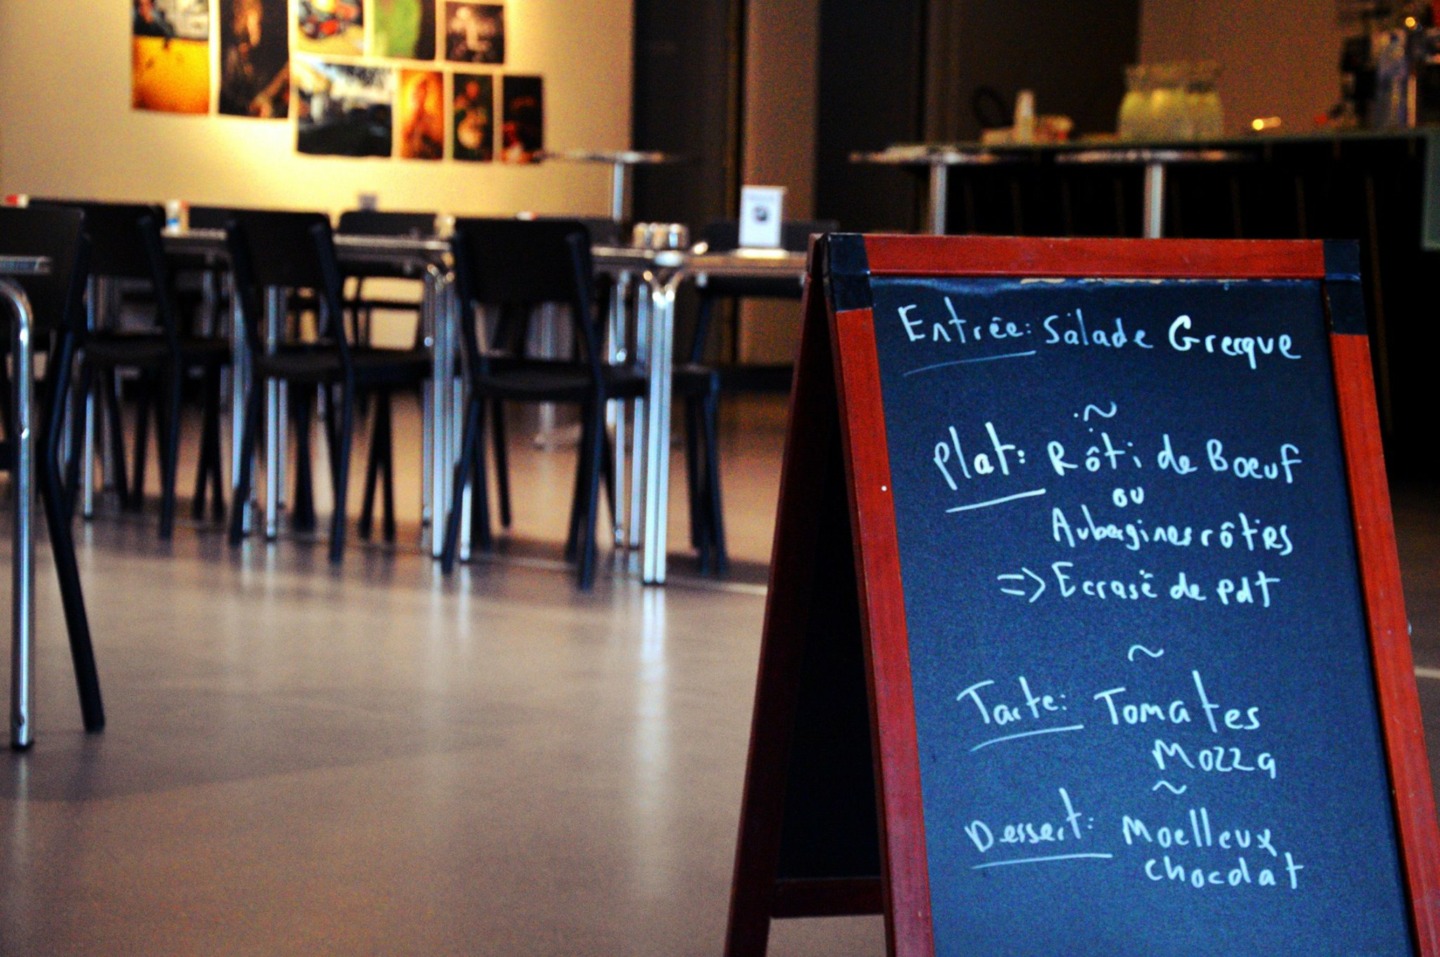 Entrée: Salade Grecque
~
Plat: Rôti de Boeuf
ou
Aubergines rôties
=> Ecrasé de pdt
~
Tarte: Tomates
Mozza
~
Dessert: Moelleux
chocolat